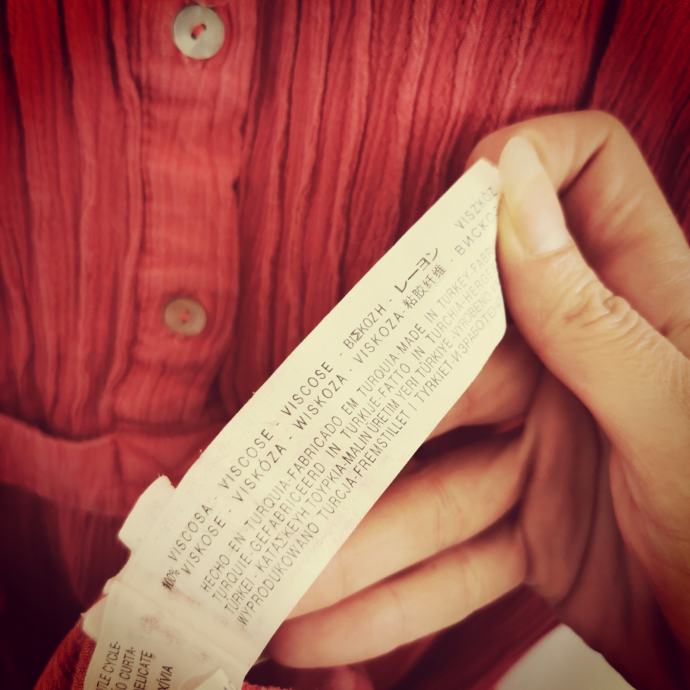 100% VISCOSA - VISCOSE - VISCOSE - ΒΙΣΚΟΖΗ - レーヨン VISZKÓZ
VISKOSE - VISKÓZA - WISKOZA - VISKOZA-粘胶纤维 - ВИСКО
HECHO EN TURQUIA-FABRICADO EM TURQUIA-MADE IN TURKEY-FAB
TURQUIE-GEFABRICEERD IN TURKIJE-FATTO IN TURCHIA-HERGE
TÜRKEI-ΚΑΤΑΣΚΕΥΗ ΤΟΥΡΚΙΑ-MALIN ÜRETIM YERI TÜRKIYE VYROBENO
WYPRODUKOWANO TURCJA-FREMSTILLET I TYRKIET-ИЗРАБОТЕН
TLE CYCLE-
O CURTA-
ELICATE
XÍVIA